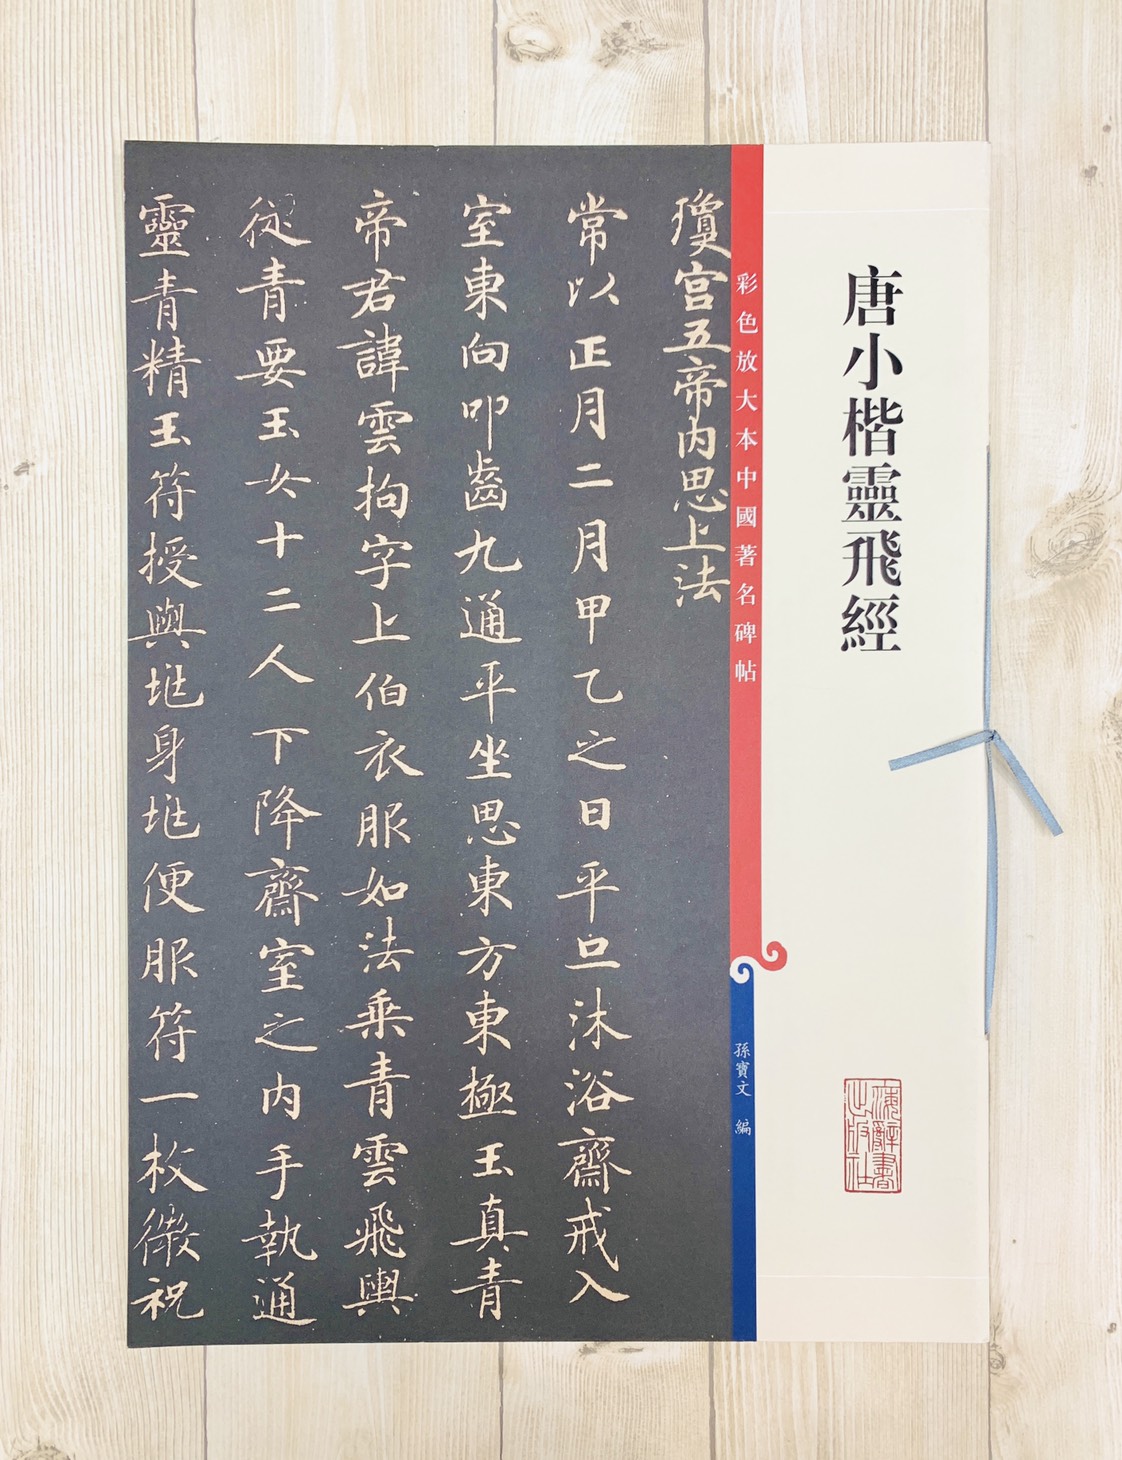 唐小楷靈飛經
彩色放大本中國著名碑帖
孫寶文 編
海辭書出版社
瓊宮五帝內思上法
常以正月二月甲乙之日平旦沐浴齋戒入
室東向叩齒九通平坐思東方東極玉真青
帝君諱雲拘字上伯衣服如法乘青雲飛輿
從青要玉女十二人下降齋室之內手執通
靈青精玉符授與兆身兆便服符一枚微祝